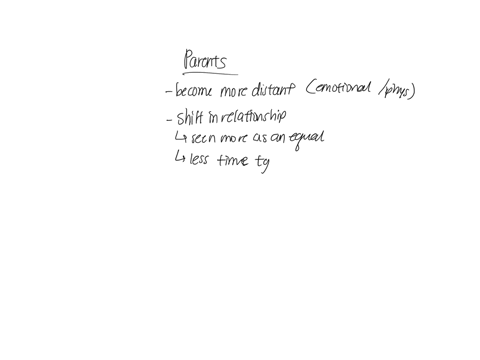 Parents
- become more distant (emotional /phys)
- shift in relationship
↳ seen more as an equal
↳ less time tg